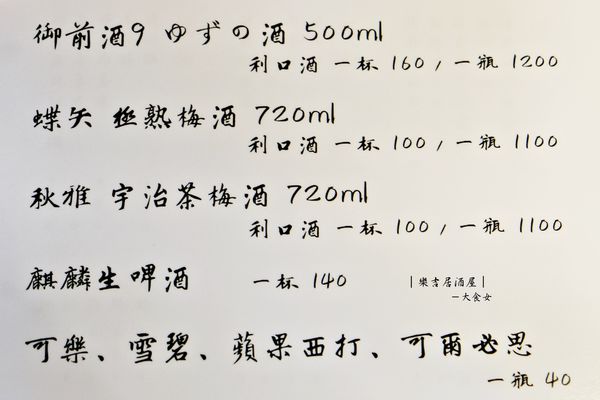 御前酒9 ゆずの酒 500ml
利口酒 一杯 160 / 一瓶 1200
蝶矢 極熟梅酒 720ml
利口酒 一杯 100 / 一瓶 1100
秋雅 宇治茶梅酒 720ml
利口酒 一杯 100 / 一瓶 1100
麒麟生啤酒 一杯 140
|樂吉居酒屋|
－大食女
可樂、雪碧、蘋果西打、可爾必思
一瓶 40